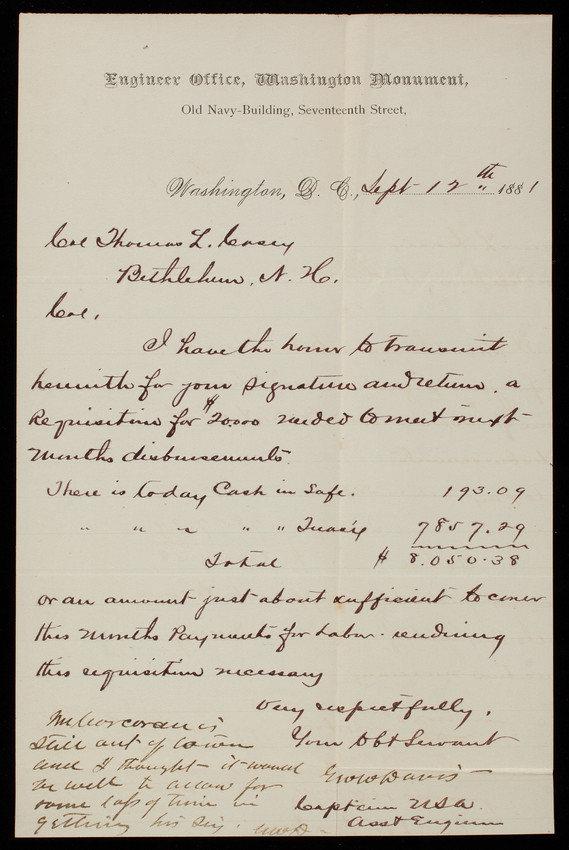 Engineer Office, Washington Monument,
Old Navy-Building, Seventeenth Street,
Washington, D. C., Sept 12th 1881
Col Thomas L. Casey
Bethlehem, N. H.
Col,
I have the honor to transmit
herewith for your signature and return, a
Requisition for $20.000 needed to meet next
Months disbursements.
There is today Cash in Safe. 193.09
" " " " " Treas'y 7857.29
Total $ 8.050.38
or an amount just about sufficient to cover
this Months Payments for Labor - rendering
this requisition necessary
Very respectfully,
Your Obt Servant
Geo W Davis
Captain USA.
Asst Engineer
Mr Corcoran is
still out of town
and I thought it would
be well to allow for
some loss of time in
getting his sig. GWD-